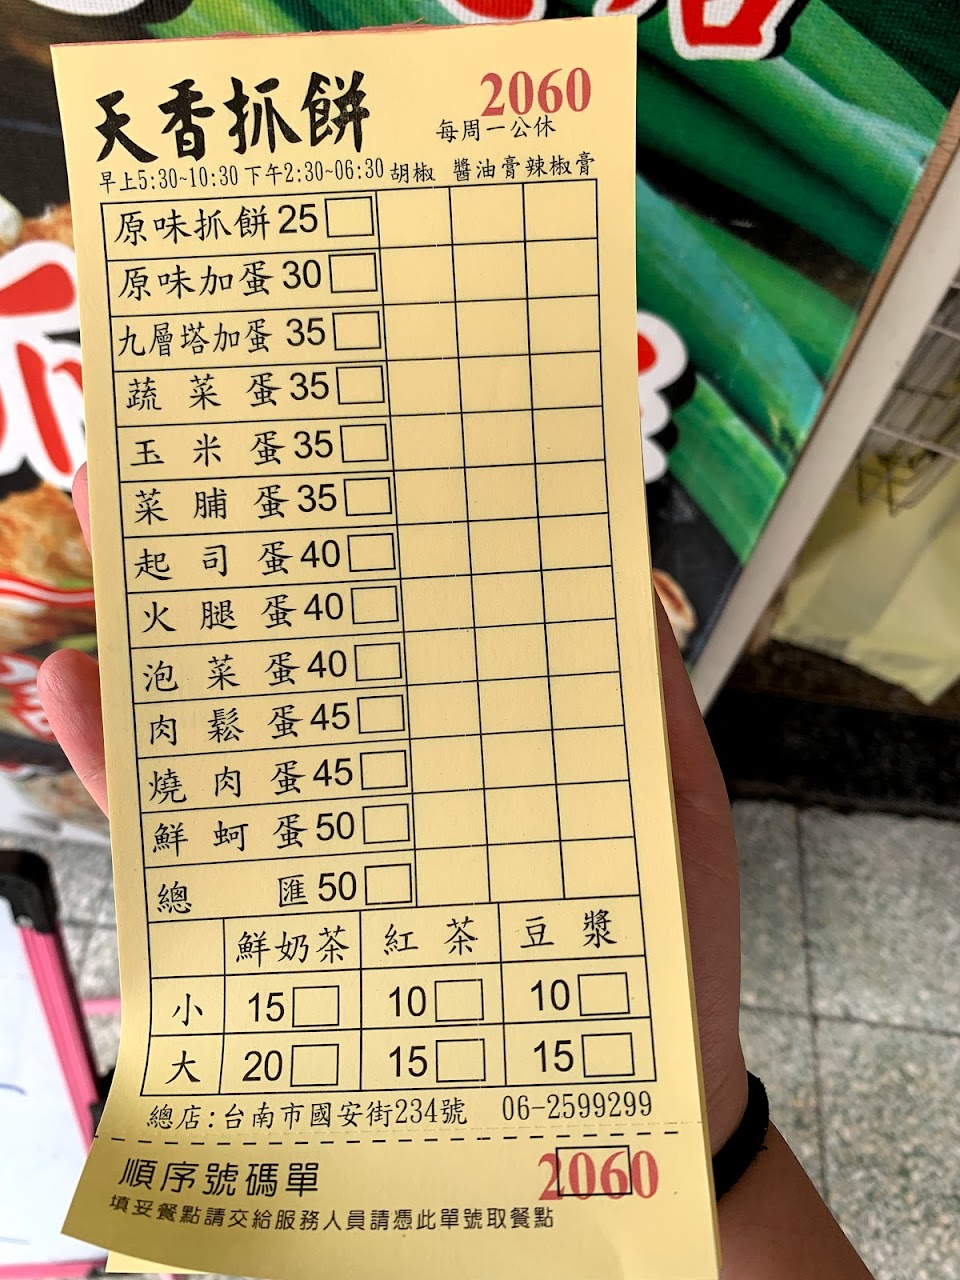 天香抓餅
2060
每周一公休
早上5:30~10:30 下午2:30~06:30 胡椒 醬油膏 辣椒膏
原味抓餅 25
原味加蛋 30
九層塔加蛋 35
蔬菜蛋 35
玉米蛋 35
菜脯蛋 35
起司蛋 40
火腿蛋 40
泡菜蛋 40
肉鬆蛋 45
燒肉蛋 45
鮮蚵蛋 50
總匯 50
鮮奶茶 紅茶 豆漿
小 15 10 10
大 20 15 15
總店:台南市國安街234號 06-2599299
順序號碼單 2060
填妥餐點請交給服務人員請憑此單號取餐點